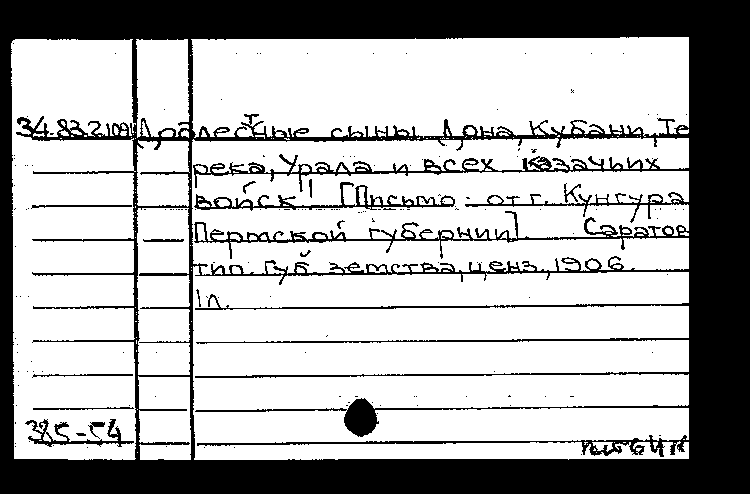 34.83.2109 Доблестные сыны Дона, Кубани, Те
река, Урала и всех казачьих
войск" [Письмо от г. Кунгура
Пермской губернии]. Саратов
тип. Губ. земства, ценз., 1906.
1л.
385-54